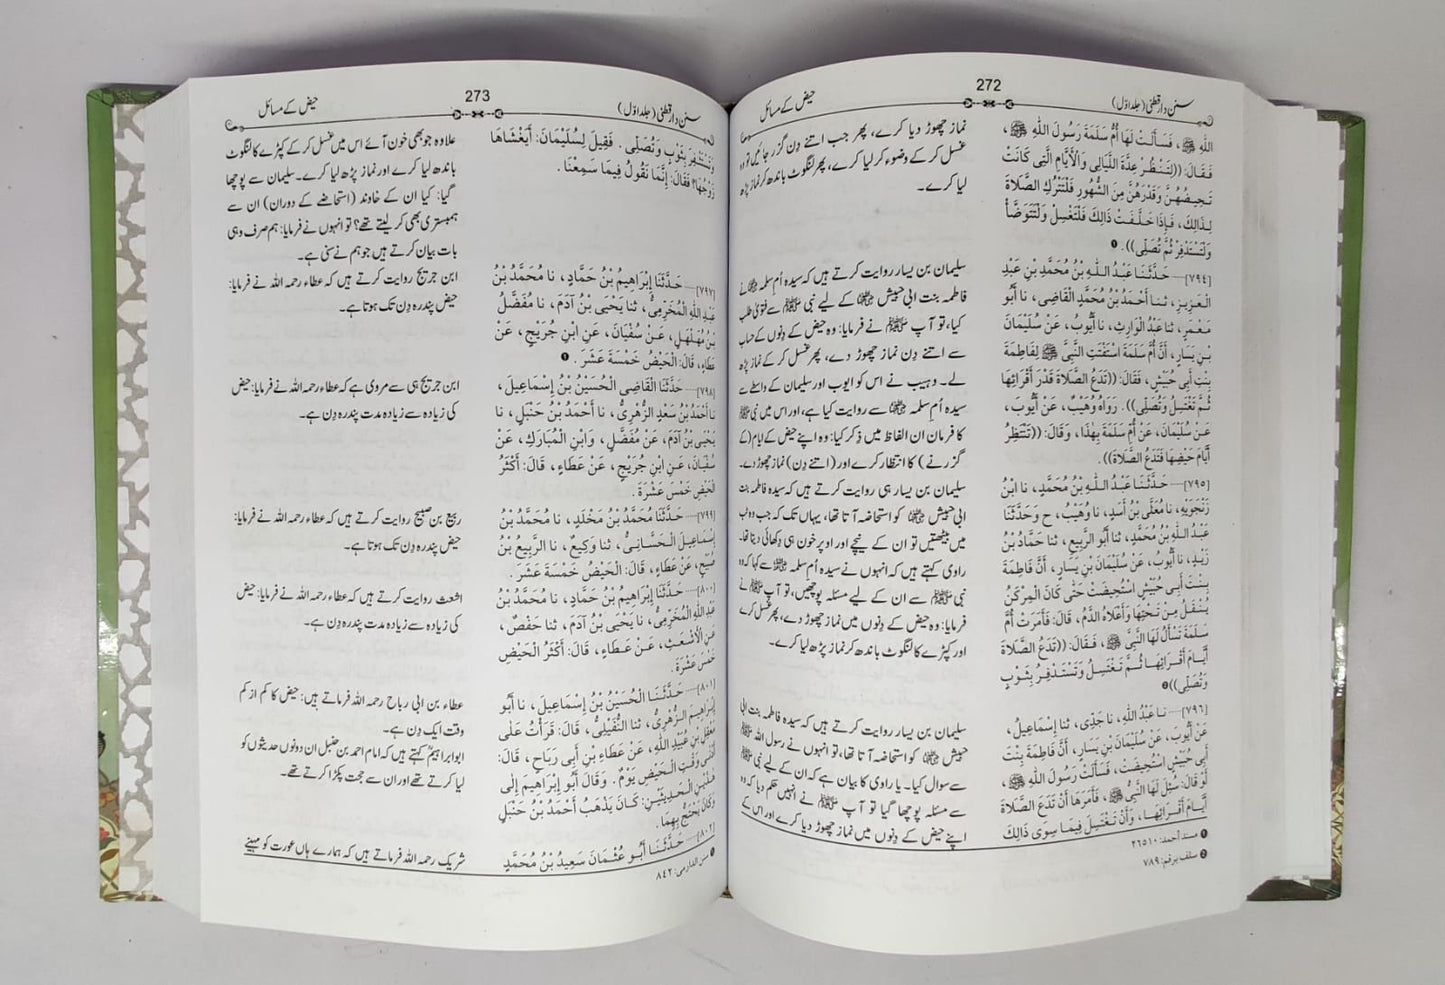 سنن دارقطنی (جلد اوّل)
272
حیض کے مسائل
اللّٰهِ ﷺ، فَسَأَلَتْ لَهَا أُمُّ سَلَمَةَ رَسُولَ اللّٰهِ ﷺ،
فَقَالَ: ((لِتَنْظُرْ عِدَّةَ اللَّيَالِي وَالْأَيَّامِ الَّتِي كَانَتْ
تَحِيضُهُنَّ وَقَدْرَهُنَّ مِنَ الشُّهُورِ فَلْتَتْرُكِ الصَّلَاةَ
لِذَالِكَ، فَإِذَا خَلَّفَتْ ذَالِكَ فَلْتَغْسِلْ وَلْتَتَوَضَّأْ
وَلْتَسْتَذْفِرْ ثُمَّ تُصَلِّي)). ❶
[٧٩٤]....حَدَّثَنَا عَبْدُ اللّٰهِ بْنُ مُحَمَّدِ بْنِ عَبْدِ
الْعَزِيزِ، ثنا أَحْمَدُ بْنُ مُحَمَّدٍ الْقَاضِي، نا أَبُو
مَعْمَرٍ، ثنا عَبْدُ الْوَارِثِ، نا أَيُّوبُ، عَنْ سُلَيْمَانَ
بْنِ يَسَارٍ، أَنَّ أُمَّ سَلَمَةَ اسْتَفْتَتِ النَّبِيَّ ﷺ لِفَاطِمَةَ
بِنْتِ أَبِي حُبَيْشٍ، فَقَالَ: ((تَدَعُ الصَّلَاةَ قَدْرَ أَقْرَائِهَا
ثُمَّ تَغْتَسِلُ وَتُصَلِّي)). رَوَاهُ وُهَيْبٌ، عَنْ أَيُّوبَ،
عَنْ سُلَيْمَانَ، عَنْ أُمِّ سَلَمَةَ بِهٰذَا، وَقَالَ: ((تَنْتَظِرُ
أَيَّامَ حَيْضِهَا فَتَدَعُ الصَّلَاةَ)).
[٧٩٥]....حَدَّثَنَا عَبْدُ اللّٰهِ بْنُ مُحَمَّدٍ، نا ابْنُ
زَنْجَوَيْهِ، نا مُعَلَّى بْنُ أَسَدٍ، نا وُهَيْبٌ، ح وَحَدَّثَنَا
عَبْدُ اللّٰهِ بْنُ مُحَمَّدٍ، ثنا أَبُو الرَّبِيعِ، ثنا حَمَّادُ بْنُ
زَيْدٍ، نا أَيُّوبُ، عَنْ سُلَيْمَانَ بْنِ يَسَارٍ، أَنَّ فَاطِمَةَ
بِنْتَ أَبِي حُبَيْشٍ اسْتُحِيضَتْ حَتَّى كَانَ الْمِرْكَنُ
يُنْقَلُ مِنْ تَحْتِهَا وَأَعْلَاهُ الدَّمُ، قَالَ: فَأَمَرَتْ أُمَّ
سَلَمَةَ تَسْأَلُ لَهَا النَّبِيَّ ﷺ، فَقَالَ: ((تَدَعُ الصَّلَاةَ
أَيَّامَ أَقْرَائِهَا ثُمَّ تَغْتَسِلُ وَتَسْتَذْفِرُ بِثَوْبٍ
وَتُصَلِّي)) ❷
[٧٩٦]....نا عَبْدُ اللّٰهِ، نا جَدِّي، ثنا إِسْمَاعِيلُ،
عَنْ أَيُّوبَ، عَنْ سُلَيْمَانَ بْنِ يَسَارٍ، أَنَّ فَاطِمَةَ بِنْتَ
أَبِي حُبَيْشٍ اسْتُحِيضَتْ، فَسَأَلَتْ رَسُولَ اللّٰهِ ﷺ،
أَوْ قَالَ: سُئِلَ لَهَا النَّبِيُّ ﷺ، فَأَمَرَهَا أَنْ تَدَعَ الصَّلَاةَ
أَيَّامَ أَقْرَائِهَا، وَأَنْ تَغْتَسِلَ فِيمَا سِوَى ذَالِكَ
نماز چھوڑ دیا کرے، پھر جب اتنے دِن گزر جائیں تو وہ
غسل کر کے وضوء کر لیا کرے، پھر لنگوٹ باندھ کر نماز پڑھ
لیا کرے۔
سلیمان بن یسار روایت کرتے ہیں کہ سیدہ اُم سلمہ نے
فاطمہ بنت ابی حبیش کے لیے نبی ﷺ سے فتویٰ طلب
کیا، تو آپ ﷺ نے فرمایا: وہ حیض کے دِنوں کے حساب
سے اتنے دِن نماز چھوڑ دے، پھر غسل کر کے نماز پڑھ
لے۔ وہیب نے اس کو ایوب اور سلیمان کے واسطے سے
سیدہ اُم سلمہ سے روایت کیا ہے، اور اس میں نبی ﷺ
کا فرمان ان الفاظ میں ذِکر کیا: وہ اپنے حیض کے ایام (کے
گزرنے) کا انتظار کرے اور (اتنے دِن) نماز چھوڑ دے۔
سلیمان بن یسار ہی روایت کرتے ہیں کہ سیدہ فاطمہ بنت
ابی حبیش کو استحاضہ آتا تھا، یہاں تک کہ جب وہ ٹب
میں بیٹھتیں تو ان کے نیچے اور اوپر خون ہی دِکھائی دیتا تھا۔
راوی کہتے ہیں کہ انہوں نے سیدہ اُم سلمہ سے کہا کہ وہ
نبی ﷺ سے ان کے لیے مسئلہ پوچھیں، تو آپ ﷺ نے
فرمایا: وہ حیض کے دِنوں میں نماز چھوڑ دے، پھر غسل کرے
اور کپڑے کا لنگوٹ باندھ کر نماز پڑھ لیا کرے۔
سلیمان بن یسار روایت کرتے ہیں کہ سیدہ فاطمہ بنت ابی
حبیش کو استحاضہ آتا تھا، تو انہوں نے رسول اللہ ﷺ
سے سوال کیا۔ یا راوی کا بیان ہے کہ ان کے لیے نبی ﷺ
سے مسئلہ پوچھا گیا تو آپ ﷺ نے انہیں حکم دیا کہ وہ
اپنے حیض کے دِنوں میں نماز چھوڑ دیا کرے اور اس کے
❶ مسند أحمد: ٢٦٥١٠
❷ سلف برقم: ٧٨٩
سنن دارقطنی (جلد اوّل)
273
حیض کے مسائل
وَتَسْتَثْفِرَ بِثَوْبٍ وَتُصَلِّي. فَقِيلَ لِسُلَيْمَانَ: أَيَغْشَاهَا
زَوْجُهَا؟ فَقَالَ: إِنَّمَا نَقُولُ فِيمَا سَمِعْنَا.
[٧٩٧]....حَدَّثَنَا إِبْرَاهِيمُ بْنُ حَمَّادٍ، نا مُحَمَّدُ بْنُ
عَبْدِ اللّٰهِ الْمُخَرِّمِيُّ، ثنا يَحْيَى بْنُ آدَمَ، نا مُفَضَّلُ
بْنُ مُهَلْهِلٍ، عَنْ سُفْيَانَ، عَنِ ابْنِ جُرَيْجٍ، عَنْ
عَطَاءٍ، قَالَ: الْحَيْضُ خَمْسَةَ عَشَرَ. ❶
[٧٩٨]....حَدَّثَنَا الْقَاضِي الْحُسَيْنُ بْنُ إِسْمَاعِيلَ،
نا أَحْمَدُ بْنُ سَعْدٍ الزُّهْرِيُّ، نا أَحْمَدُ بْنُ حَنْبَلٍ، نا
يَحْيَى بْنُ آدَمَ، عَنْ مُفَضَّلٍ، وَابْنِ الْمُبَارَكِ، عَنْ
سُفْيَانَ، عَنِ ابْنِ جُرَيْجٍ، عَنْ عَطَاءٍ، قَالَ: أَكْثَرُ
الْحَيْضِ خَمْسَ عَشْرَةَ.
[٧٩٩]....حَدَّثَنَا مُحَمَّدُ بْنُ مَخْلَدٍ، نا مُحَمَّدُ بْنُ
إِسْمَاعِيلَ الْحَسَّانِيُّ، ثنا وَكِيعٌ، نا الرَّبِيعُ بْنُ
صُبَيْحٍ، عَنْ عَطَاءٍ، قَالَ: الْحَيْضُ خَمْسَةَ عَشَرَ.
[٨٠٠]....حَدَّثَنَا إِبْرَاهِيمُ بْنُ حَمَّادٍ، نا مُحَمَّدُ بْنُ
عَبْدِ اللّٰهِ الْمُخَرِّمِيُّ، نا يَحْيَى بْنُ آدَمَ، ثنا حَفْصٌ،
عَنِ الْأَشْعَثِ، عَنْ عَطَاءٍ، قَالَ: أَكْثَرُ الْحَيْضِ
خَمْسَ عَشْرَةَ.
[٨٠١]....حَدَّثَنَا الْحُسَيْنُ بْنُ إِسْمَاعِيلَ، نا أَبُو
إِبْرَاهِيمَ الزُّهْرِيُّ، ثنا النُّفَيْلِيُّ، قَالَ: قَرَأْتُ عَلَى
مَعْقِلِ بْنِ عُبَيْدِ اللّٰهِ، عَنْ عَطَاءِ بْنِ أَبِي رَبَاحٍ، قَالَ:
أَدْنَى وَقْتِ الْحَيْضِ يَوْمٌ. وَقَالَ أَبُو إِبْرَاهِيمَ إِلَى
هٰذَيْنِ الْحَدِيثَيْنِ: كَانَ يَذْهَبُ أَحْمَدُ بْنُ حَنْبَلٍ
وَكَانَ يَحْتَجُّ بِهِمَا.
[٨٠٢]....حَدَّثَنَا أَبُو عُثْمَانَ سَعِيدُ بْنُ مُحَمَّدٍ
علاوہ جو بھی خون آئے اس میں غسل کر کے کپڑے کا لنگوٹ
باندھ لیا کرے اور نماز پڑھ لیا کرے۔ سلیمان سے پوچھا
گیا: کیا ان کے خاوند (استحاضے کے دوران) ان سے
ہمبستری بھی کر لیتے تھے؟ تو انہوں نے فرمایا: ہم صرف وہی
بات بیان کرتے ہیں جو ہم نے سنی ہے۔
ابن جریج روایت کرتے ہیں کہ عطاء رحمہ اللہ نے فرمایا:
حیض پندرہ دِن تک ہوتا ہے۔
ابن جریج ہی سے مروی ہے کہ عطاء رحمہ اللہ نے فرمایا: حیض
کی زیادہ سے زیادہ مدت پندرہ دِن ہے۔
ربیع بن صبیح روایت کرتے ہیں کہ عطاء رحمہ اللہ نے فرمایا:
حیض پندرہ دِن تک ہوتا ہے۔
اشعث روایت کرتے ہیں کہ عطاء رحمہ اللہ نے فرمایا: حیض
کی زیادہ سے زیادہ مدت پندرہ دِن ہے۔
عطاء بن ابی رباح رحمہ اللہ فرماتے ہیں: حیض کا کم از کم
وقت ایک دِن ہے۔
ابو ابراہیمؒ کہتے ہیں کہ امام احمد بن حنبل ان دونوں حدیثوں کو
لیا کرتے تھے اور ان سے حجت پکڑا کرتے تھے۔
شریک رحمہ اللہ فرماتے ہیں کہ ہمارے ہاں عورت کو مہینے
❶ سنن الدارمی: ٨٤٢